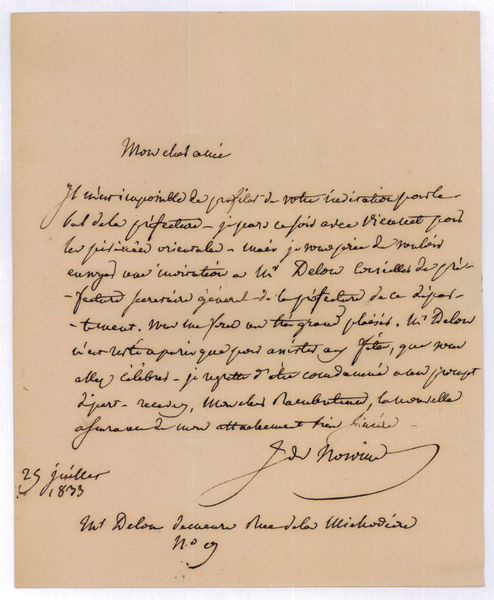 Mon cher ami
Il m'est impossible de profiter de votre invitation pour le
bal de la préfecture - je pars ce soir avec Viennet pour
les pirénées orientales - mais je vous prie de vouloir
envoyer une invitation a Mr Delon Conseiller de pré-
-fecture secretaire général de la préfecture de ce dépar-
-tement. vous me ferez un très grand plaisir. Mr Delon
n'est resté a paris que pour assister aux fêtes, que vous
allez célébrer - je regrette d'être condamné a un prompt
départ - recevez, mon cher Rambuteau, la nouvelle
assurance de mon attachement bien sincère -
J de Norvins
25 juillet
1833
Mr Delon demeure Rue de la Michodière
No 9